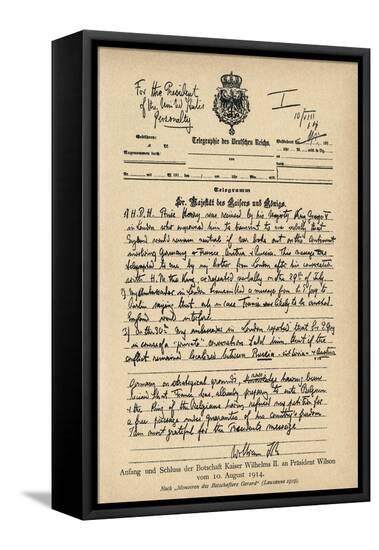 For the President
of the United States
Personally
I
10/VIII
14
Telegraphie des Deutschen Reichs.
Telegramm
Sr. Majestät des Kaisers und Königs.
1) H.R.H. Prince Henry was received by his Majesty King George V
in London who empowered him to transmit to me verbally that
England would remain neutral if war broke out on the Continent
involving Germany & France, Austria & Russia. This message was
telegraphed to me by my brother from London after his conversation
with H.M. the King, & repeated verbally on the 29th of July.
2) my Ambassador in London transmitted a message from Sir E. Grey to
Berlin saying that only in case France was likely to be crushed
England would interfere.
3) On the 30th my Ambassador in London reported that Sir E. Grey
in course of a "private" conversation told him that if the
conflict remained localized between Russia & Austria
Germany on strategical grounds having been
France was already preparing to enter Belgium
& the King of the Belgians having refused my petition for
a free passage under guarantee of his country's freedom
I am most grateful for the Presidents message
William
Anfang und Schluss der Botschaft Kaiser Wilhelms II. an Präsident Wilson
vom 10. August 1914.
Nach „Memoiren des Botschafters Gerard" (Lausanne 1919).